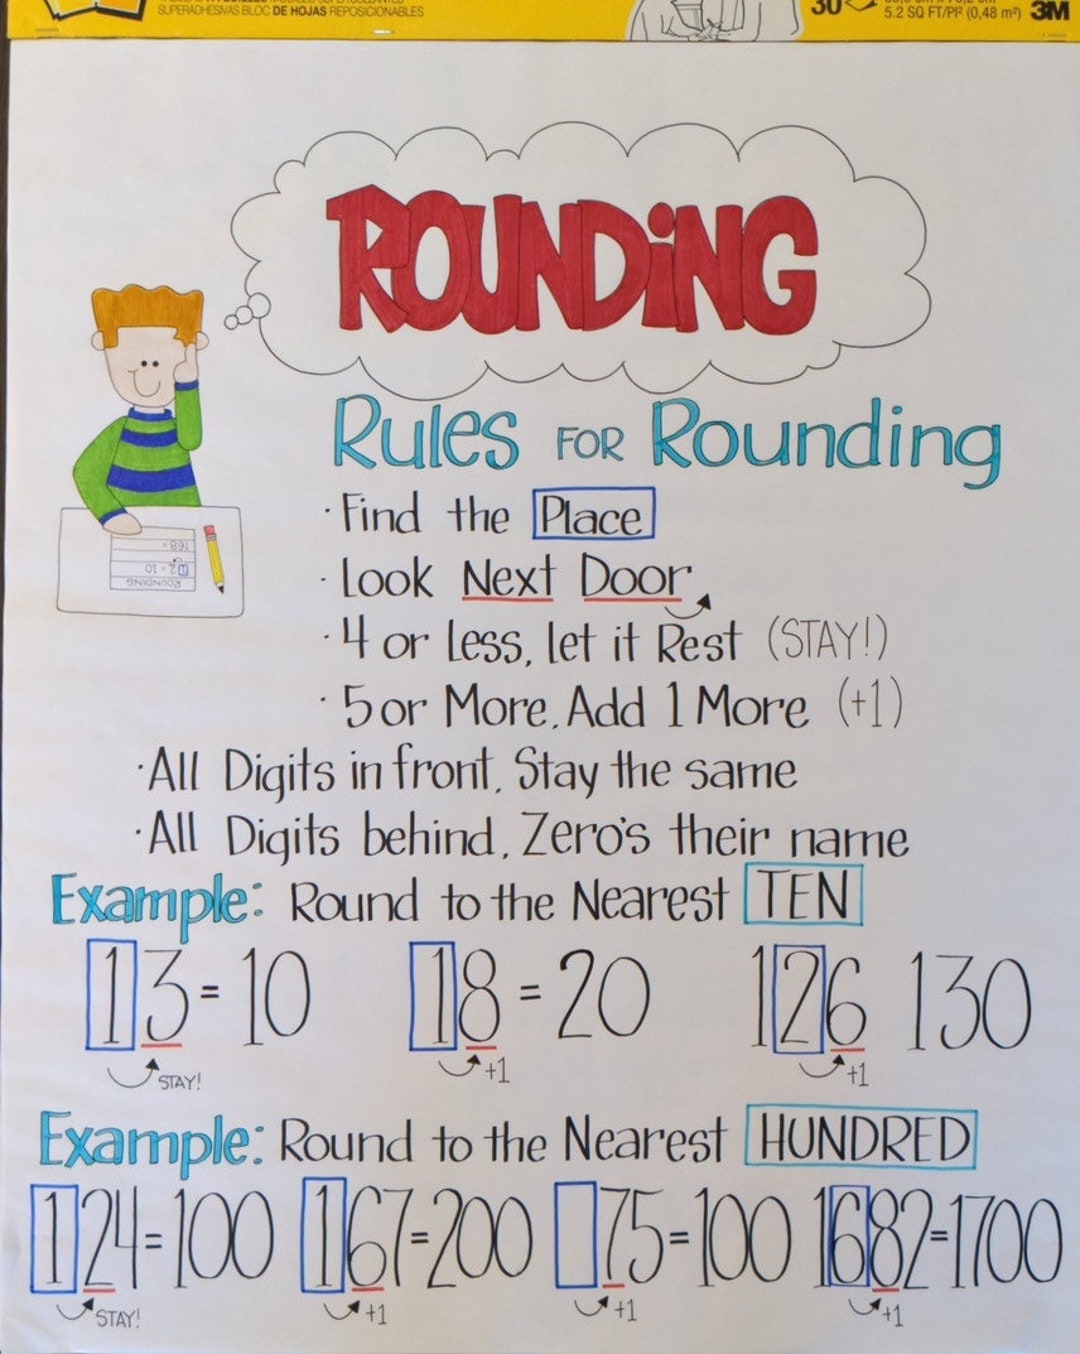 SUPERADHESIVAS BLOC DE HOJAS REPOSICIONABLES
30
5.2 SQ FT/PI² (0,48 m²) 3M
ROUNDiNG
Rules for Rounding
· Find the Place
· Look Next Door
· 4 or less, let it Rest (STAY!)
· 5 or More, Add 1 More (+1)
· All Digits in front, Stay the same
· All Digits behind, Zero's their name
ROUNDING
12 = 10
168 =
Example: Round to the Nearest TEN
13 = 10 18 = 20 126 130
STAY! +1 +1
Example: Round to the Nearest HUNDRED
124 = 100 167 = 200 75 = 100 1682 = 1700
STAY! +1 +1 +1